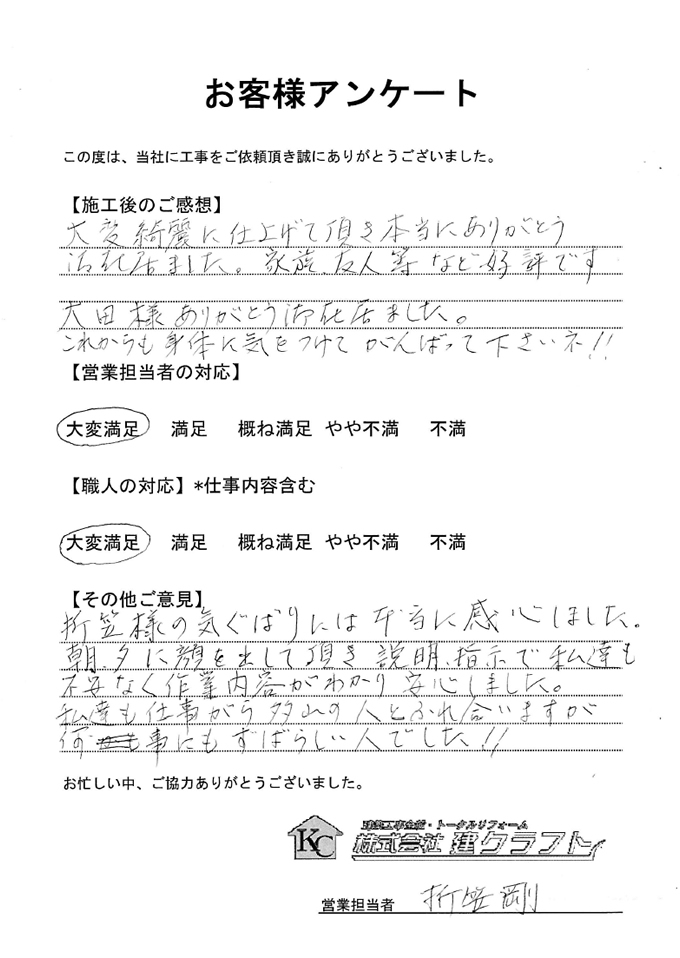 お客様アンケート
この度は、当社に工事をご依頼頂き誠にありがとうございました。
【施工後のご感想】
大変綺麗に仕上げて頂き本当にありがとう
御在居ました。家族、友人等など好評です
大田様ありがとう御在居ました。
これからも身体に気をつけてがんばって下さいネ!!
【営業担当者の対応】
大変満足 満足 概ね満足 やや不満 不満
【職人の対応】*仕事内容含む
大変満足 満足 概ね満足 やや不満 不満
【その他ご意見】
折笠様の気ぐばりには本当に感心しました。
朝、夕に顔を出して頂き説明、指示で私達も
不安なく作業内容がわかり安心しました。
私達も仕事がら多山の人とふれ合いますが
何事にもすばらしい人でした!!
お忙しい中、ご協力ありがとうございました。
KC
建築工事全般・トータルリフォーム
株式会社 建クラフト
営業担当者 折笠剛